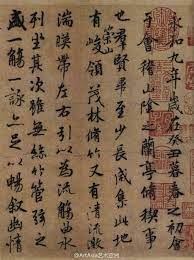 永和九年歲在癸丑暮春之初會
于會稽山陰之蘭亭脩稧事
也羣賢畢至少長咸集此地
有崇山峻領茂林脩竹又有清流激
湍暎帶左右引以為流觴曲水
列坐其次雖無絲竹管弦之
盛一觴一詠亦足以暢敘幽情
@ArtAsia艺术